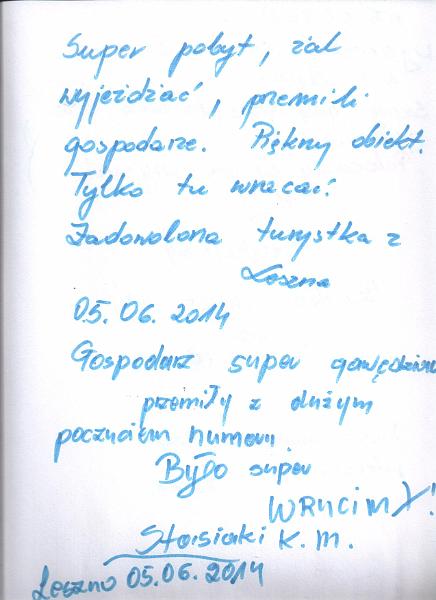 Super pobyt, żal
wyjeżdżać, przemili
gospodarze. Piękny obiekt.
Tylko tu wracać!
Zadowolona turystka z
Leszna
05.06.2014
Gospodarz super gawędziarz
przemiły z dużym
poczuciem humoru.
Było super
WRÓCIMY!
Stasiaki K. M.
Leszno 05.06.2014